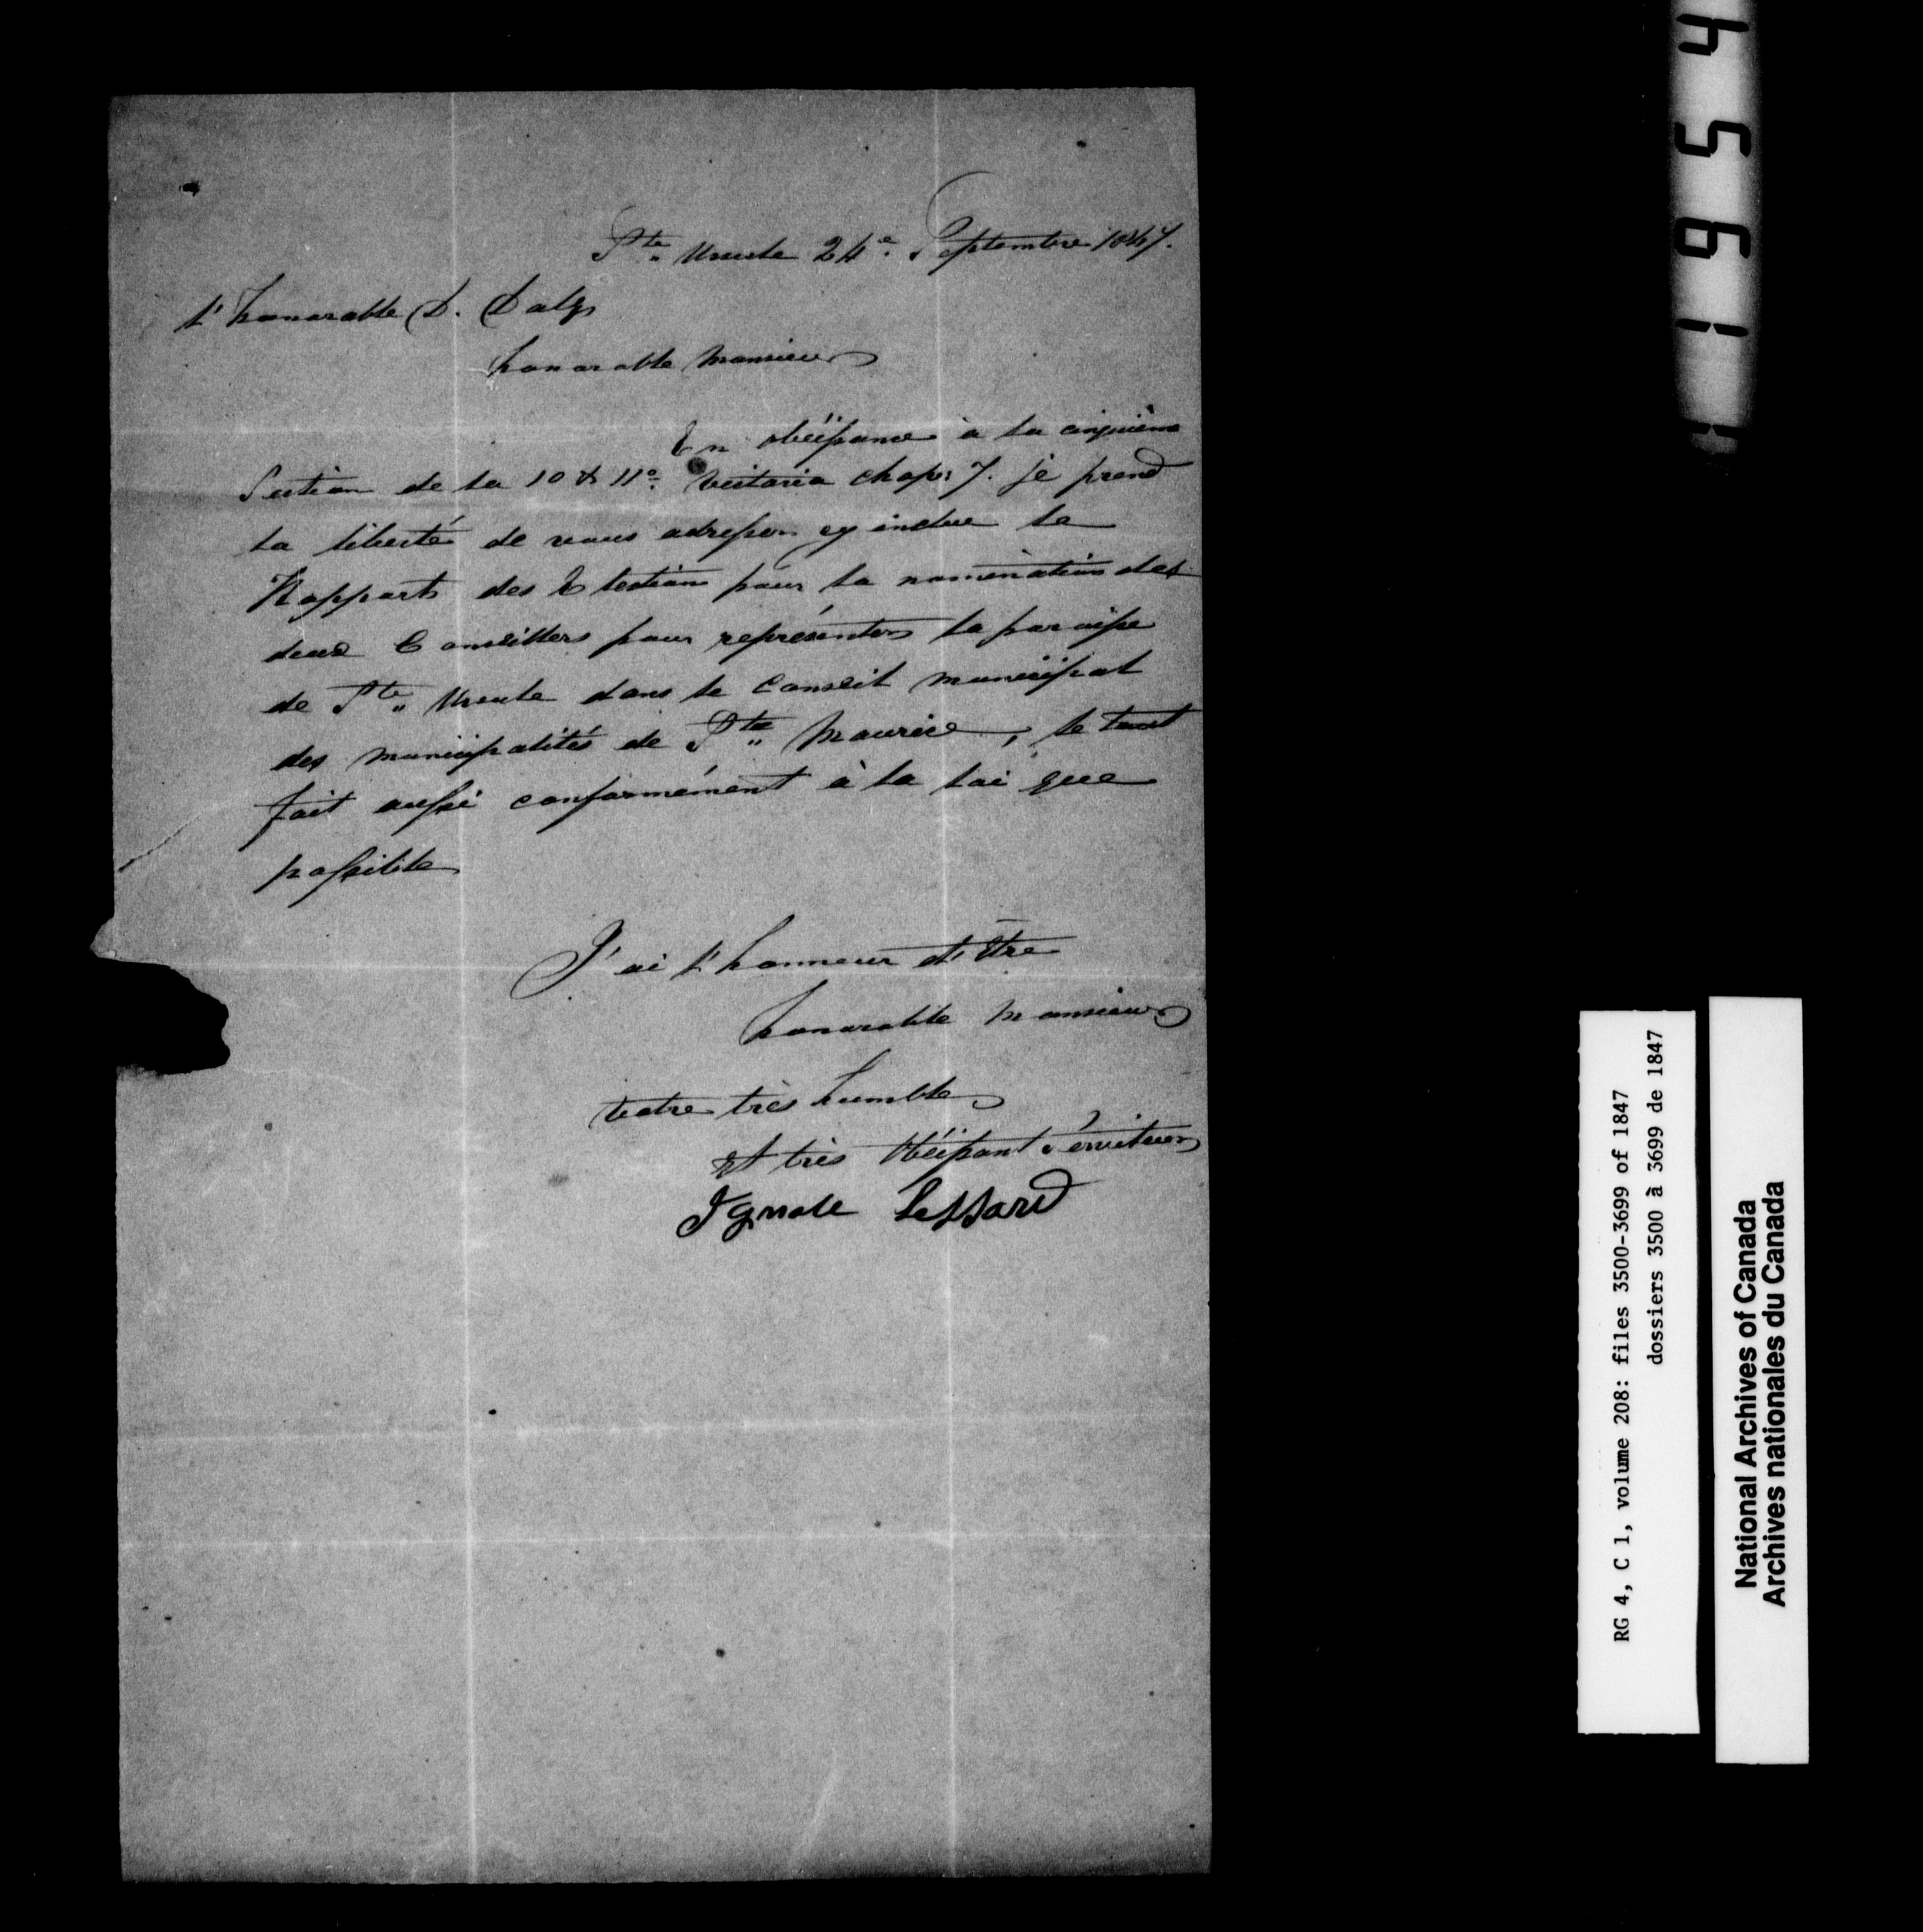 Ste. Ursule 24e. Septembre 1847.
l'honorable D. Daly
honorable Monsieur
En obéissance à la cinquième
Section de la 10 & 11o. Victoria chap: 7. je prend
la liberté de vous adresser cy inclue le
Rapport des Election pour la nomination des
deux Conseillers pour représenter la paroisse
de Ste. Ursule dans le Conseil municipal
des municipalités de St. Maurice, le tout
fait aussi conformément à la loi que
possible
J'ai l'honneur d'être
honorable Monsieur
votre très humble
et très Obéissant Serviteur
Ignace Lessard
1 9 6 5 4
RG 4, C 1, volume 208: files 3500-3699 of 1847
dossiers 3500 à 3699 de 1847
National Archives of Canada
Archives nationales du Canada